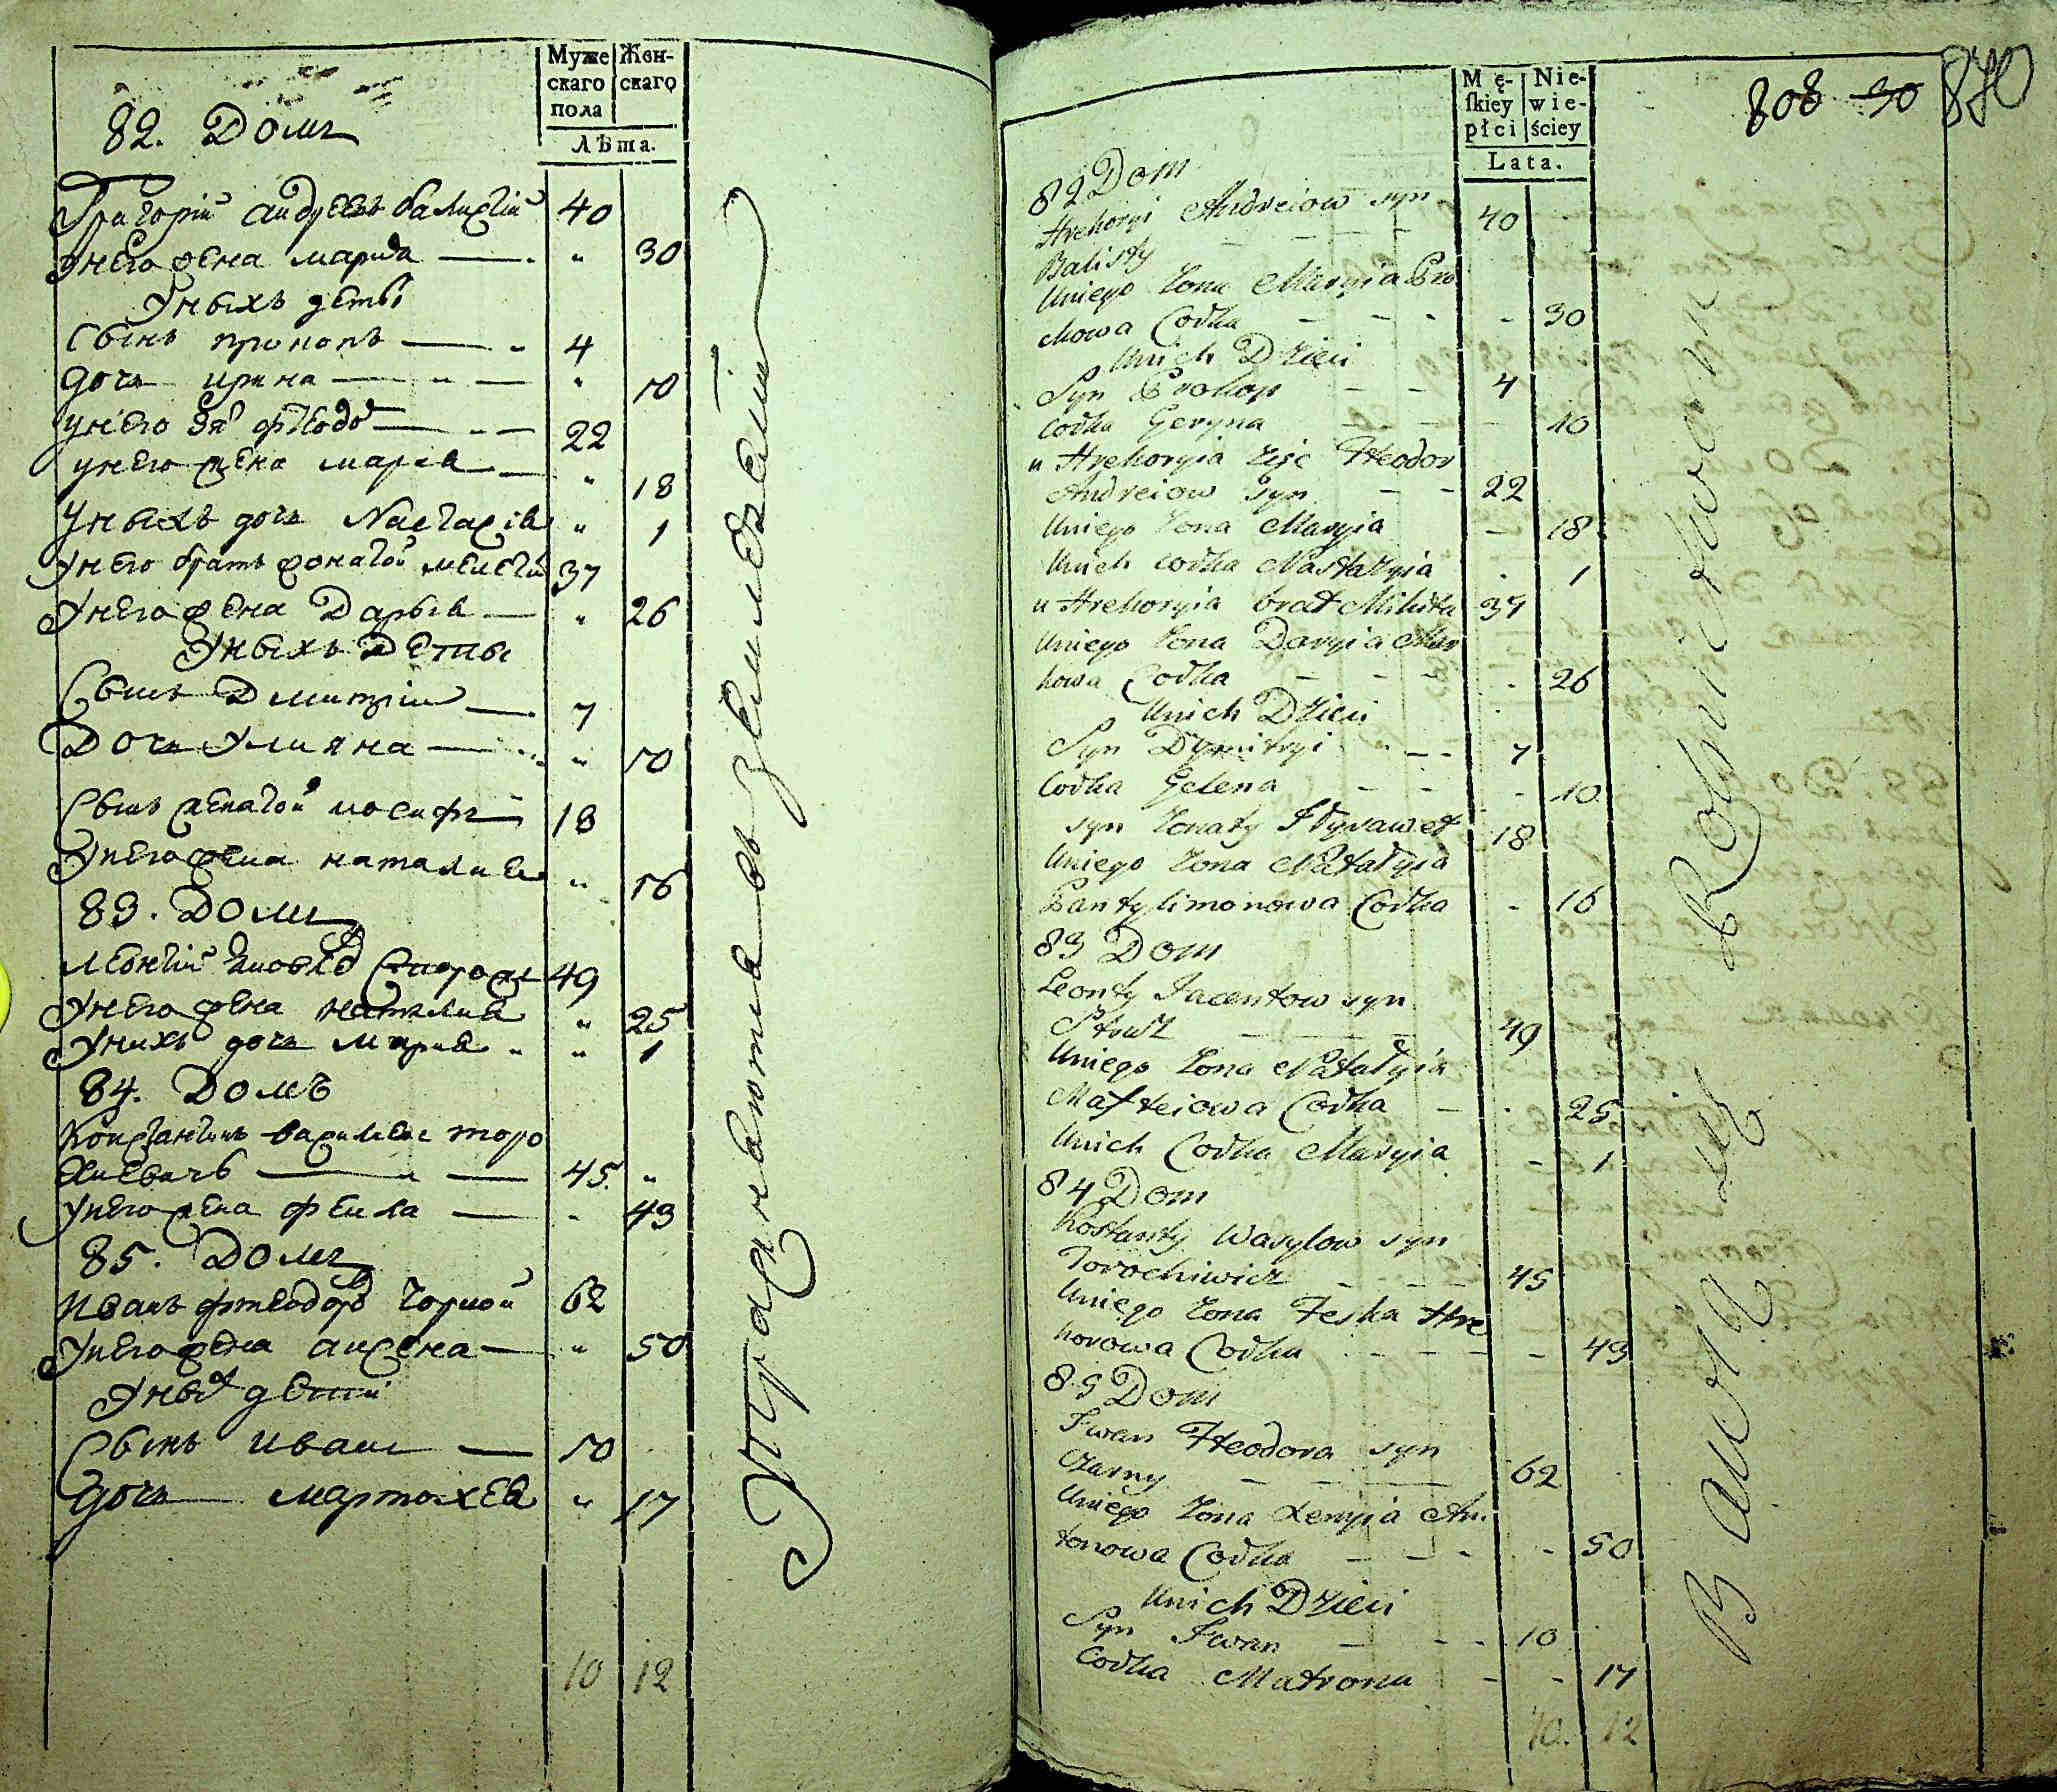 Муже Жен-
скаго скаго
пола
Лѣта.
82. Домъ
Григорій Андреевъ Балистий 40
Унего жена Марида " 30
Уныхъ деты
Сынъ Прокопъ 4
дочь Ирина " 10
унего зя Фтеодо 22
унего жена Мариа " 18
Уныхъ дочь Настасіа " 1
Унего братъ жонатой 37
Унего жена Дарыа " 26
Уныхъ Деты
Сынъ Дмитрій 7
Дочь Улияна " 10
Сынъ женатой иосифъ 18
Унего жена наталиа " 16
83. Домъ
Леонтій 49
Унего жена наталиа " 25
Унихъ дочь Мариа " 1
84. Домъ
Константинъ Василевъ Торо
хиевичъ 45. "
Унего жена Феила - 43
85. Домъ
Иванъ Фтеодоръ Чорной 62
Унего жена Аксена " 50
Уных дети
Сынъ иванъ 10
Дочь мартохеа " 17
10 12
Упражнаютца въ земледелїи
808 30 870
Mę- Nie-
ſkiey wie-
płci ściey
Lata.
82 Dom
Hrehoryi Andreiow syn
Balisty 40
Uniego Żona Maryia Pro
chowa Codka - 30
Unich Dzieci
Syn Prokop 4
Codka Geryna 10
u Hrehoryia Zięc Hteodor
Andreiow syn 22
Uniego Zona Maryia 18
Unich codka Nastazyia 1
u Hrehoryia brat Mikita 37
Uniego Zona Daryia Mar
kowa Codka 26
Unich Dzieci
Syn Dymitryi 7
Codka Gelena 10
syn Zonaty 18
Uniego Zona Natalyia
Pantylimonowa Codka 16
83 Dom
Leonty Jacentow syn
49
Uniego Zona Natalyia
Mafteiowa Codka 25
Unich Codka Maryia 1
84 Dom
Kostanty Wasylow syn
Torochiwicz 45
Uniego Zona Feska Hre
horowa Codka 43
85 Dom
Iwan Hteodora syn
Czarny 62
Uniego Zona Xenyia An
tonowa Codka 50
Unich Dzieci
Syn Iwan 10
Codka Matrona 17
10. 12
Bawią się Rolnictwem